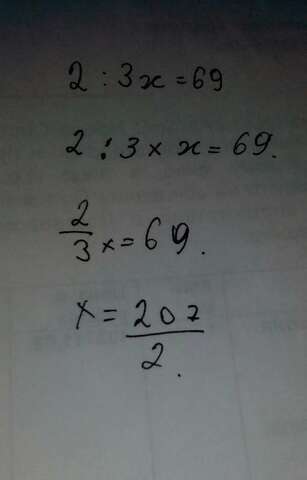 2 : 3x = 69
2 : 3 × x = 69.
2/3 x = 69.
x = 207/2.